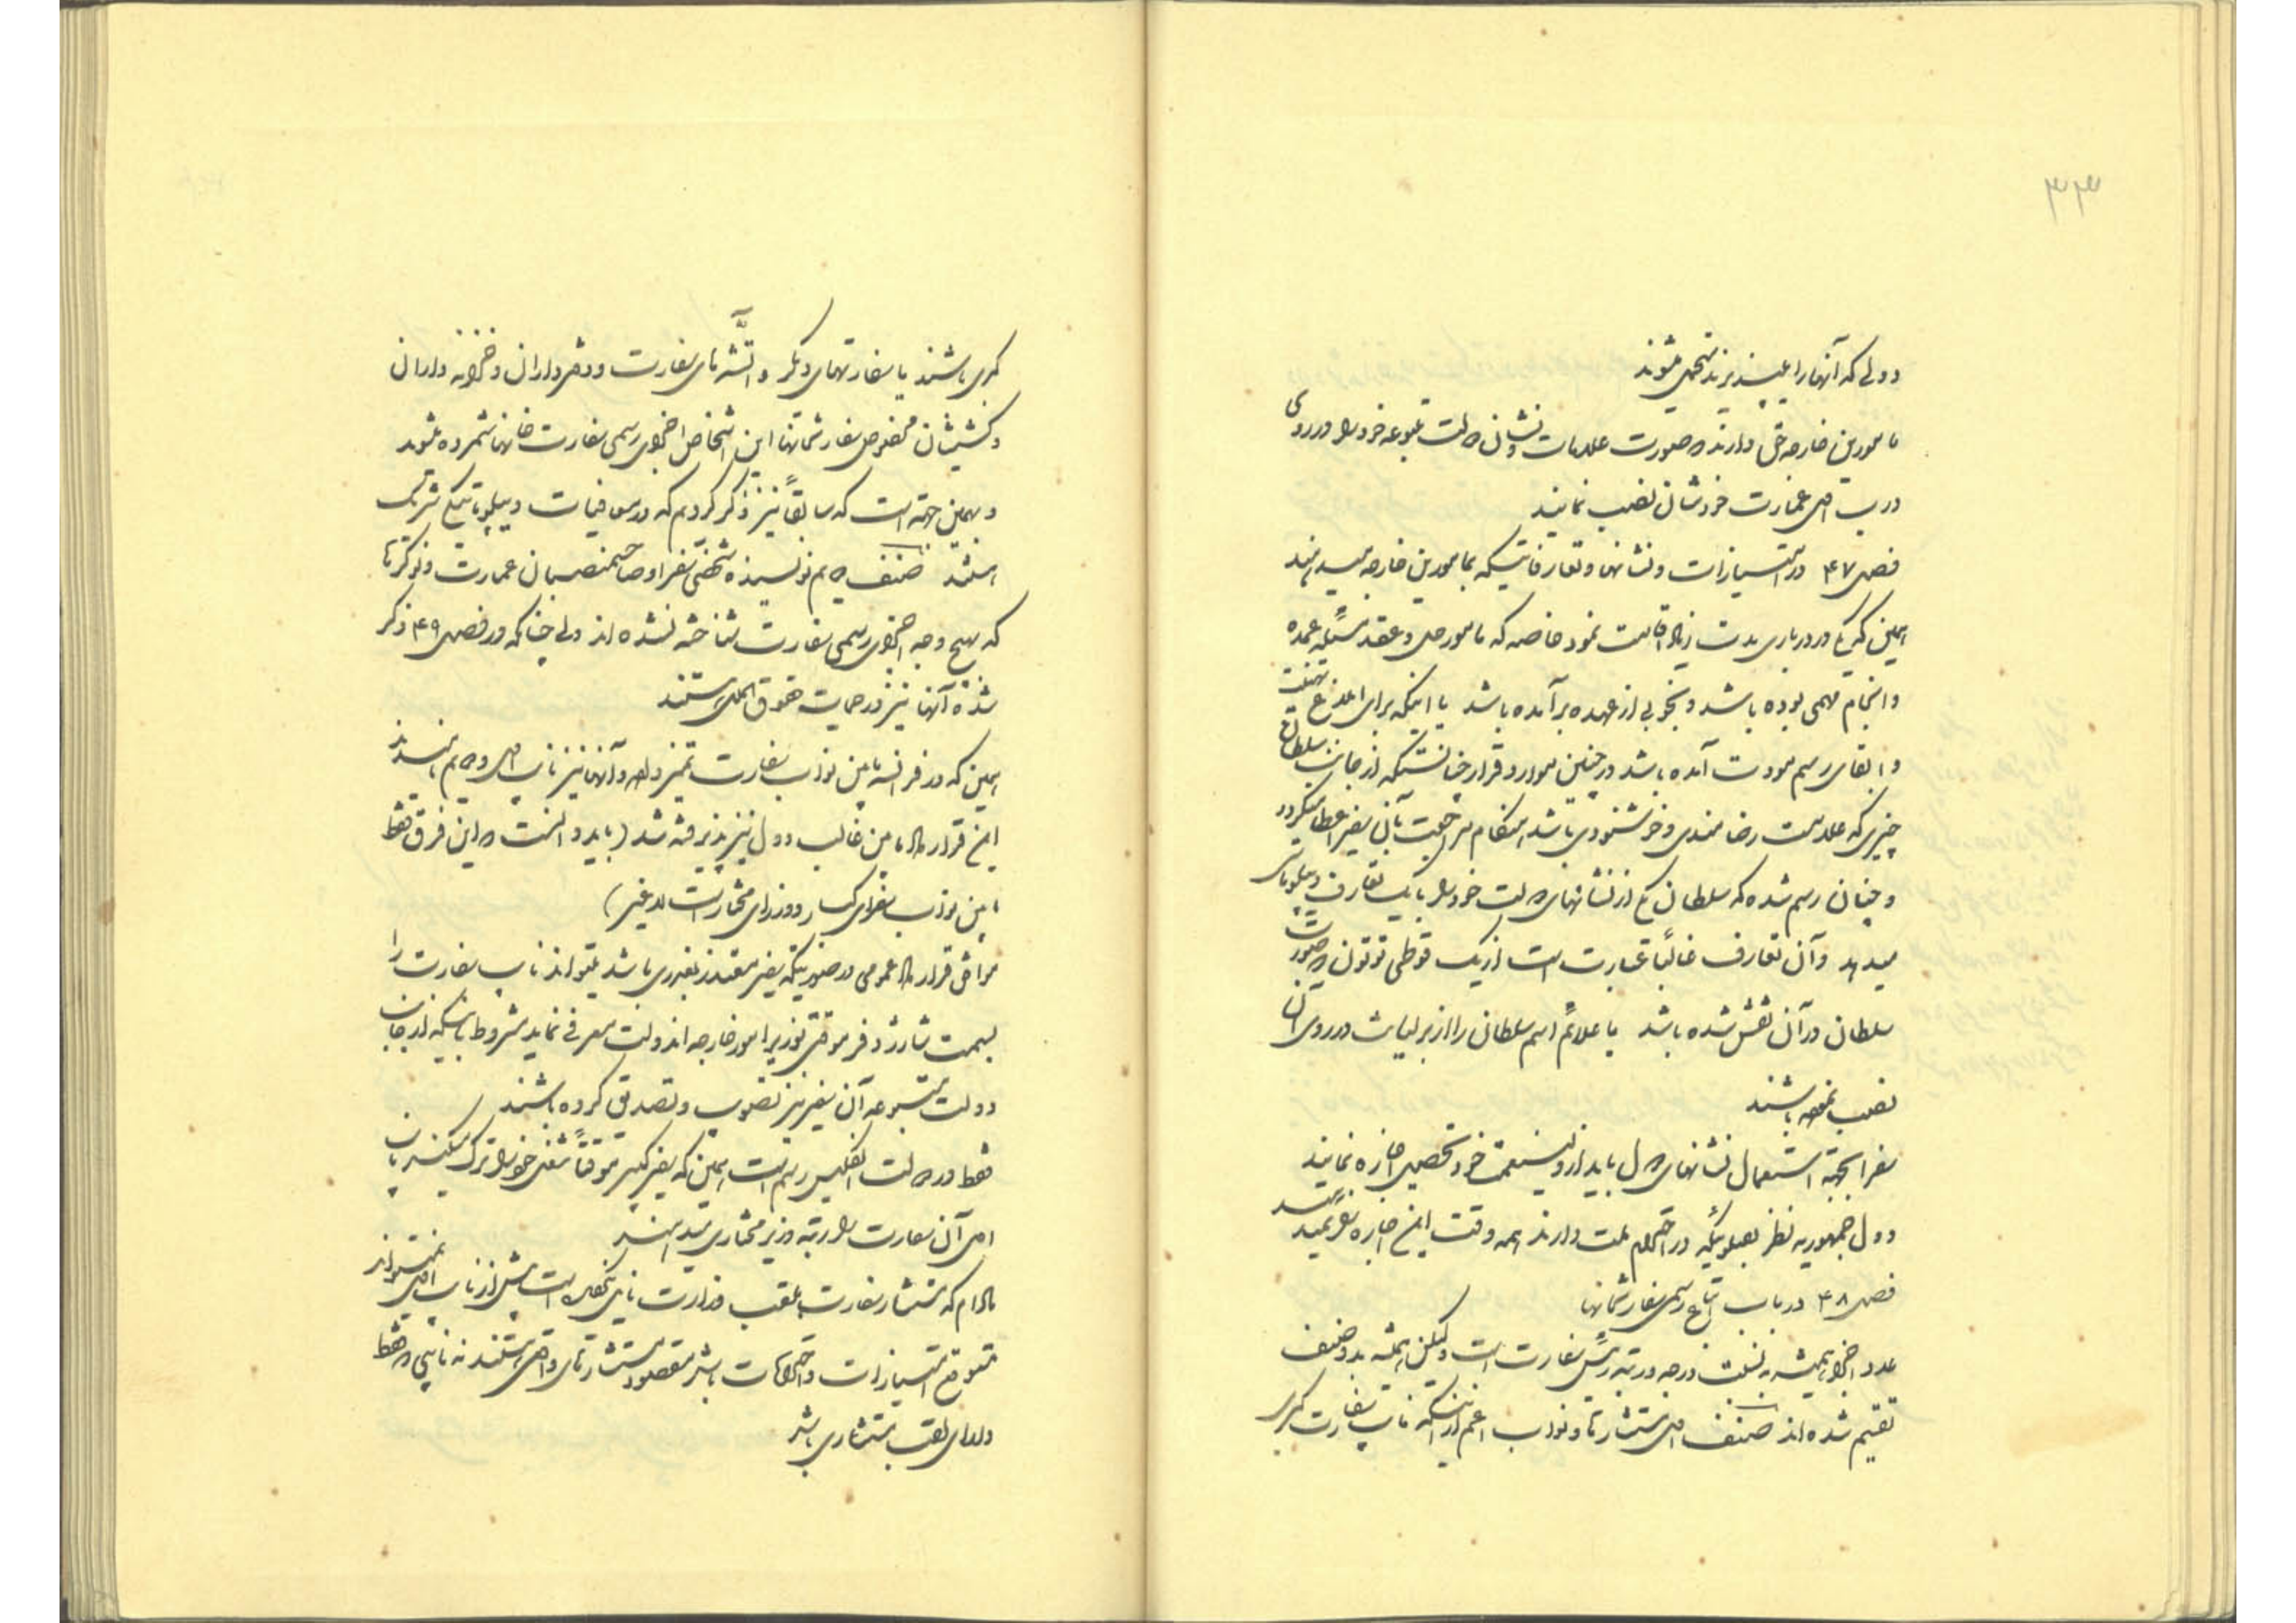 ۳۳
دولی که آنها را میپذیرند متحمل میشوند
مامورین خارجه حق دارند صورت علامات و نشان دولت متبوعه خود را در روی
درب اصلی عمارت خودشان نصب نمایند
فصل ۴۷ در امتیازات و نشانها و تعارفاتیکه بمامورین خارجه میدهند
همین که یکی در درباری مدت زیاد اقامت نمود خاصه که مامور حل و عقد مسئله عمده
و انجام مهمی بوده باشد و بخوبی از عهده برآمده باشد یا اینکه برای ابلاغ تهنیت
و ابقای رسم مودت آمده باشد در چنین موارد قرار چنانستکه از جانب سلطان
چیزی که علامت رضامندی و خوشنودی باشد هنگام مراجعت بآن سفیر اعطا میگردد
و چنان رسم شده که سلطان یکی از نشانهای دولت خود را با یک تعارف دیپلوماتی
میدهد و آن تعارف غالباً عبارت است از یک قوطی توتون که صورت
سلطان در آن نقش شده باشد یا علائم اسم سلطان را از برلیان در روی آن
نصب نموده باشند
سفرا بجهة استعمال نشانهای دول باید از ولینعمت خود تحصیل اجازه نمایند
دول جمهوریه نظر بملوئیکه در احترام ملت دارند همه وقت این اجازه را نمیدهند
فصل ۴۸ در باب اتباع رسمی سفارتخانها
عدد اجزا همیشه به نسبت درجه و رتبه رئیس سفارت است ولیکن همیشه بدو صنف
تقسیم شده‌اند صنف اول مستشارها و نواب اعم از اینکه نایب سفارت کبری
کبری باشند یا سفارتهای دیگر و آتشه‌های سفارت و دفترداران و خزانه داران
و کشیشان مخصوص سفارتخانها این اشخاص اجزای رسمی سفارت خانها شمرده میشوند
و بهمین جهة است که سابقاً نیز ذکر کردیم که در مصافیات دیپلوماتیکی شریک
هستند صنف دویم نویسنده شخصی سفرا و صاحبمنصبان عمارت و نوکرها
که بهیچ وجه اجزای رسمی سفارت شناخته نشده‌اند ولی چنانکه در فصل ۴۹ ذکر
شده آنها نیز در حمایت حقوق الملل هستند
همین که در فرانسه مابین نواب سفارت تمیز داده و آنها نیز نایب اول و دویم نامیدند
این قرارداد مابین غالب دول نیز پذیرفته شد (باید دانست که این فرق فقط
مابین نواب سفرای کبار و وزرای مختار است لاغیر)
موافق قرارداد عمومی در صورتیکه سفیر معتذر بعذری باشد میتواند نایب سفارت را
بسمت شارژدفر موقتی بوزیر امور خارجه آندولت معرفی نماید مشروط باینکه از جانب
دولت متبوعه آن سفیر نیز تصویب و تصدیق کرده باشند
فقط در دولت انگلیس رسم است همین که سفیر کبیر موقتاً شغل خود را ترک میکند نایب
اول آن سفارت را رتبه وزیر مختاری میدهند
مادام که مستشار سفارت بلقب وزارت نایل نگردیده است بیش از نایب اول نمیتواند
متوقع امتیازات و احترامات باشد مقصود مستشارهای واقعی هستند نه نایبی که فقط
دارای لقب مستشاری باشد